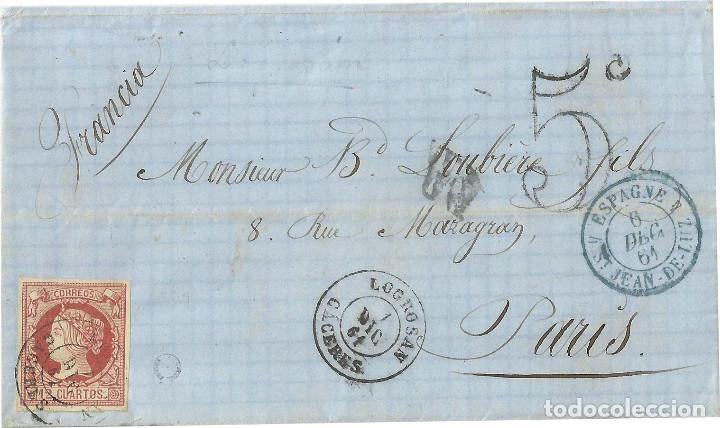 Francia
5 c
Monsieur Bd Loubière fils
8. Rue Mazagran,
Paris.
ESPAGNE
6
DEC
61
ST JEAN-DE-LUZ
LOGROSAN
1
DIC
61
CACERES.
CORREOS
12 CUARTOS
todocoleccion